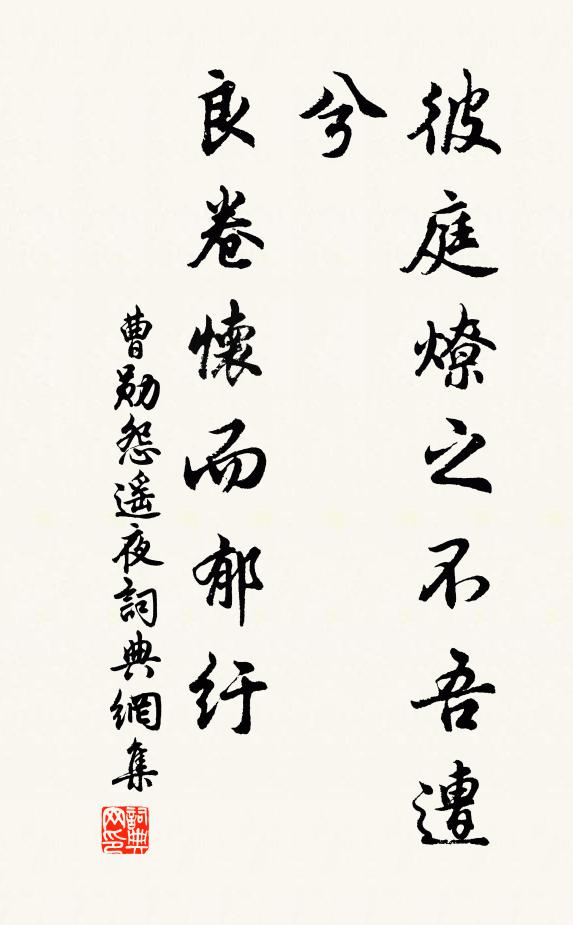 彼庭燎之不吾遭
兮
良卷懷而郁紆
曹勛怨遙夜詞典網集
詞典网印